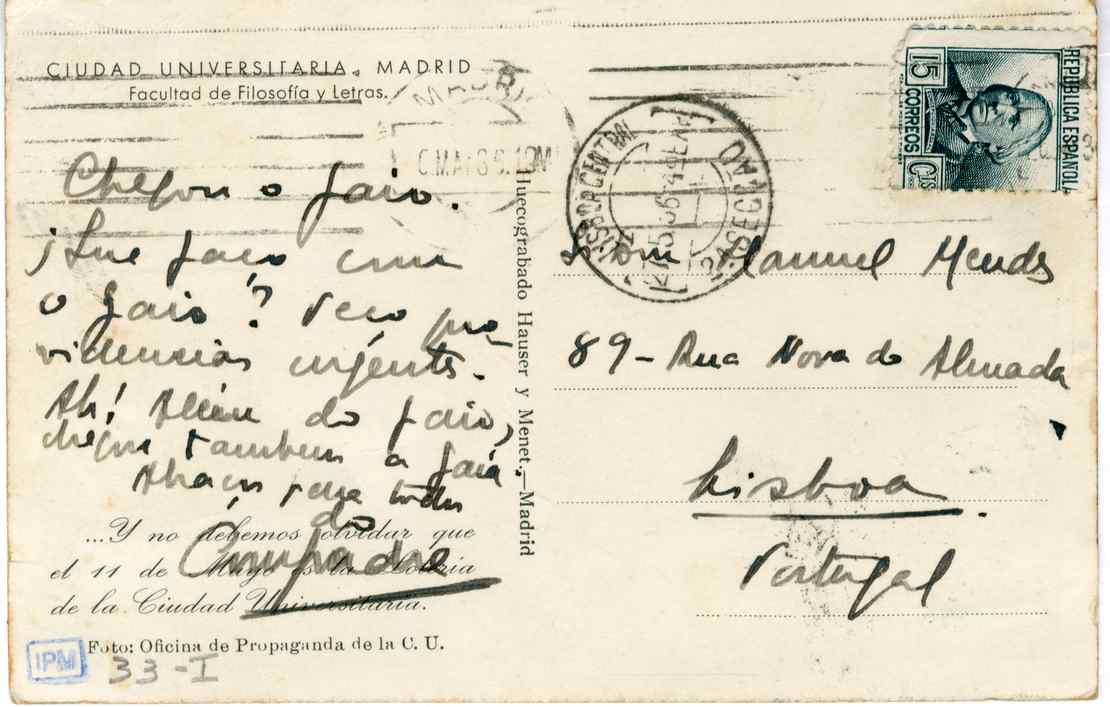 CIUDAD UNIVERSITARIA. MADRID
Facultad de Filosofía y Letras.
MADRID
LISBOA CENTRAL
15 CORREOS CTS
REPUBLICA ESPAÑOLA
Chegou o gaio.
¡Que faço com
o gaio? Peço pro-
videncias urgentes.
Ah! Além do gaio,
chegou tambem a gaia.
Abraços para todos
do
Compadre
Huecograbado Hauser y Menet.—Madrid
Manuel Mendes
89 - Rua Nova do Almada
Lisboa
Portugal
...Y no debemos olvidar que
el 11 de Mayo es la Lotería
de la Ciudad Universitaria.
Foto: Oficina de Propaganda de la C. U.
IPM
33-I